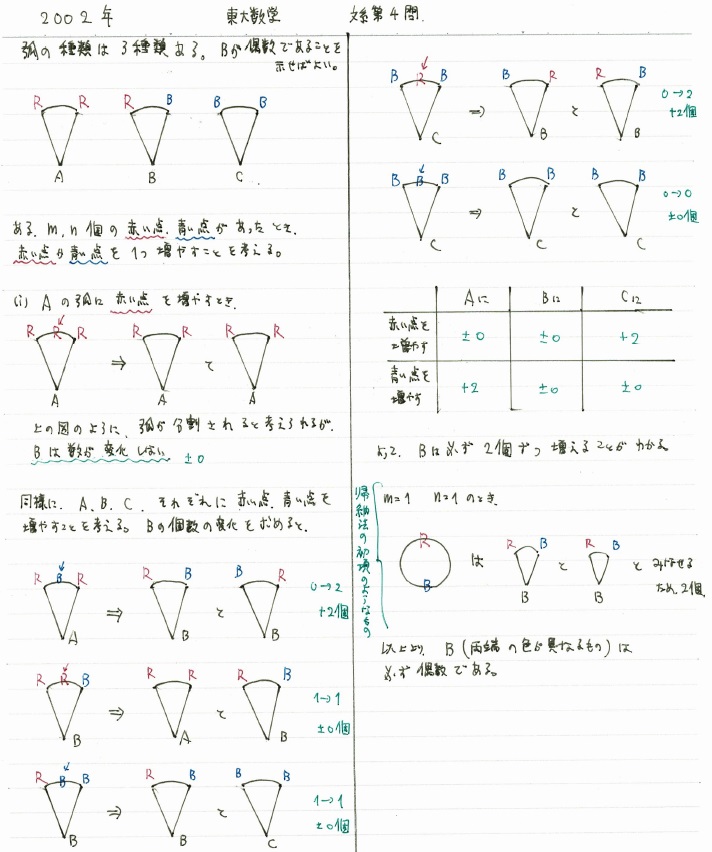 2002年 東大数学 文系第4問.
弧の種類は3種類ある。Bが偶数であることを
示せばよい。
R R R B B B
A B C
ある、m,n個の赤い点、青い点があったとき、
赤い点か青い点を1つ増やすことを考える。
(i) Aの弧に赤い点を増やすとき、
R R R R R R R
A ⇒ A と A
上の図のように、弧が分割されると考えられるが、
Bは数が変化しない ±0
同様に、A、B、C、それぞれに赤い点、青い点を
増やすことを考える。Bの個数の変化を求めると、
R B R R B B R 0→2
A ⇒ B と B +2個
R R B R R R B 1→1
B ⇒ A と B ±0個
R B B R B B B 1→1
B ⇒ B と C ±0個
B R B B R R B 0→2
C ⇒ B と B +2個
B B B B B B B 0→0
C ⇒ C と C ±0個
Aに Bに Cに
赤い点を
増やす ±0 ±0 +2
青い点を
増やす +2 ±0 ±0
よって、Bは必ず2個ずつ増えることがわかる
帰納法の初項のようなもの
m=1 n=1のとき、
R R B R B
は と とみなせる
B B B ため、2個
以上より、B(両端の色が異なるもの)は
必ず偶数である。